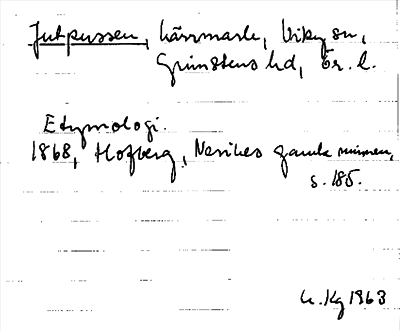 Jutpussen, kärrmark, Viby sn,
Grimstens hd, Ör. l.
Etymologi.
1868, Hofberg, Nerikes gamla minnen,
s. 185.
L. Kg 1963